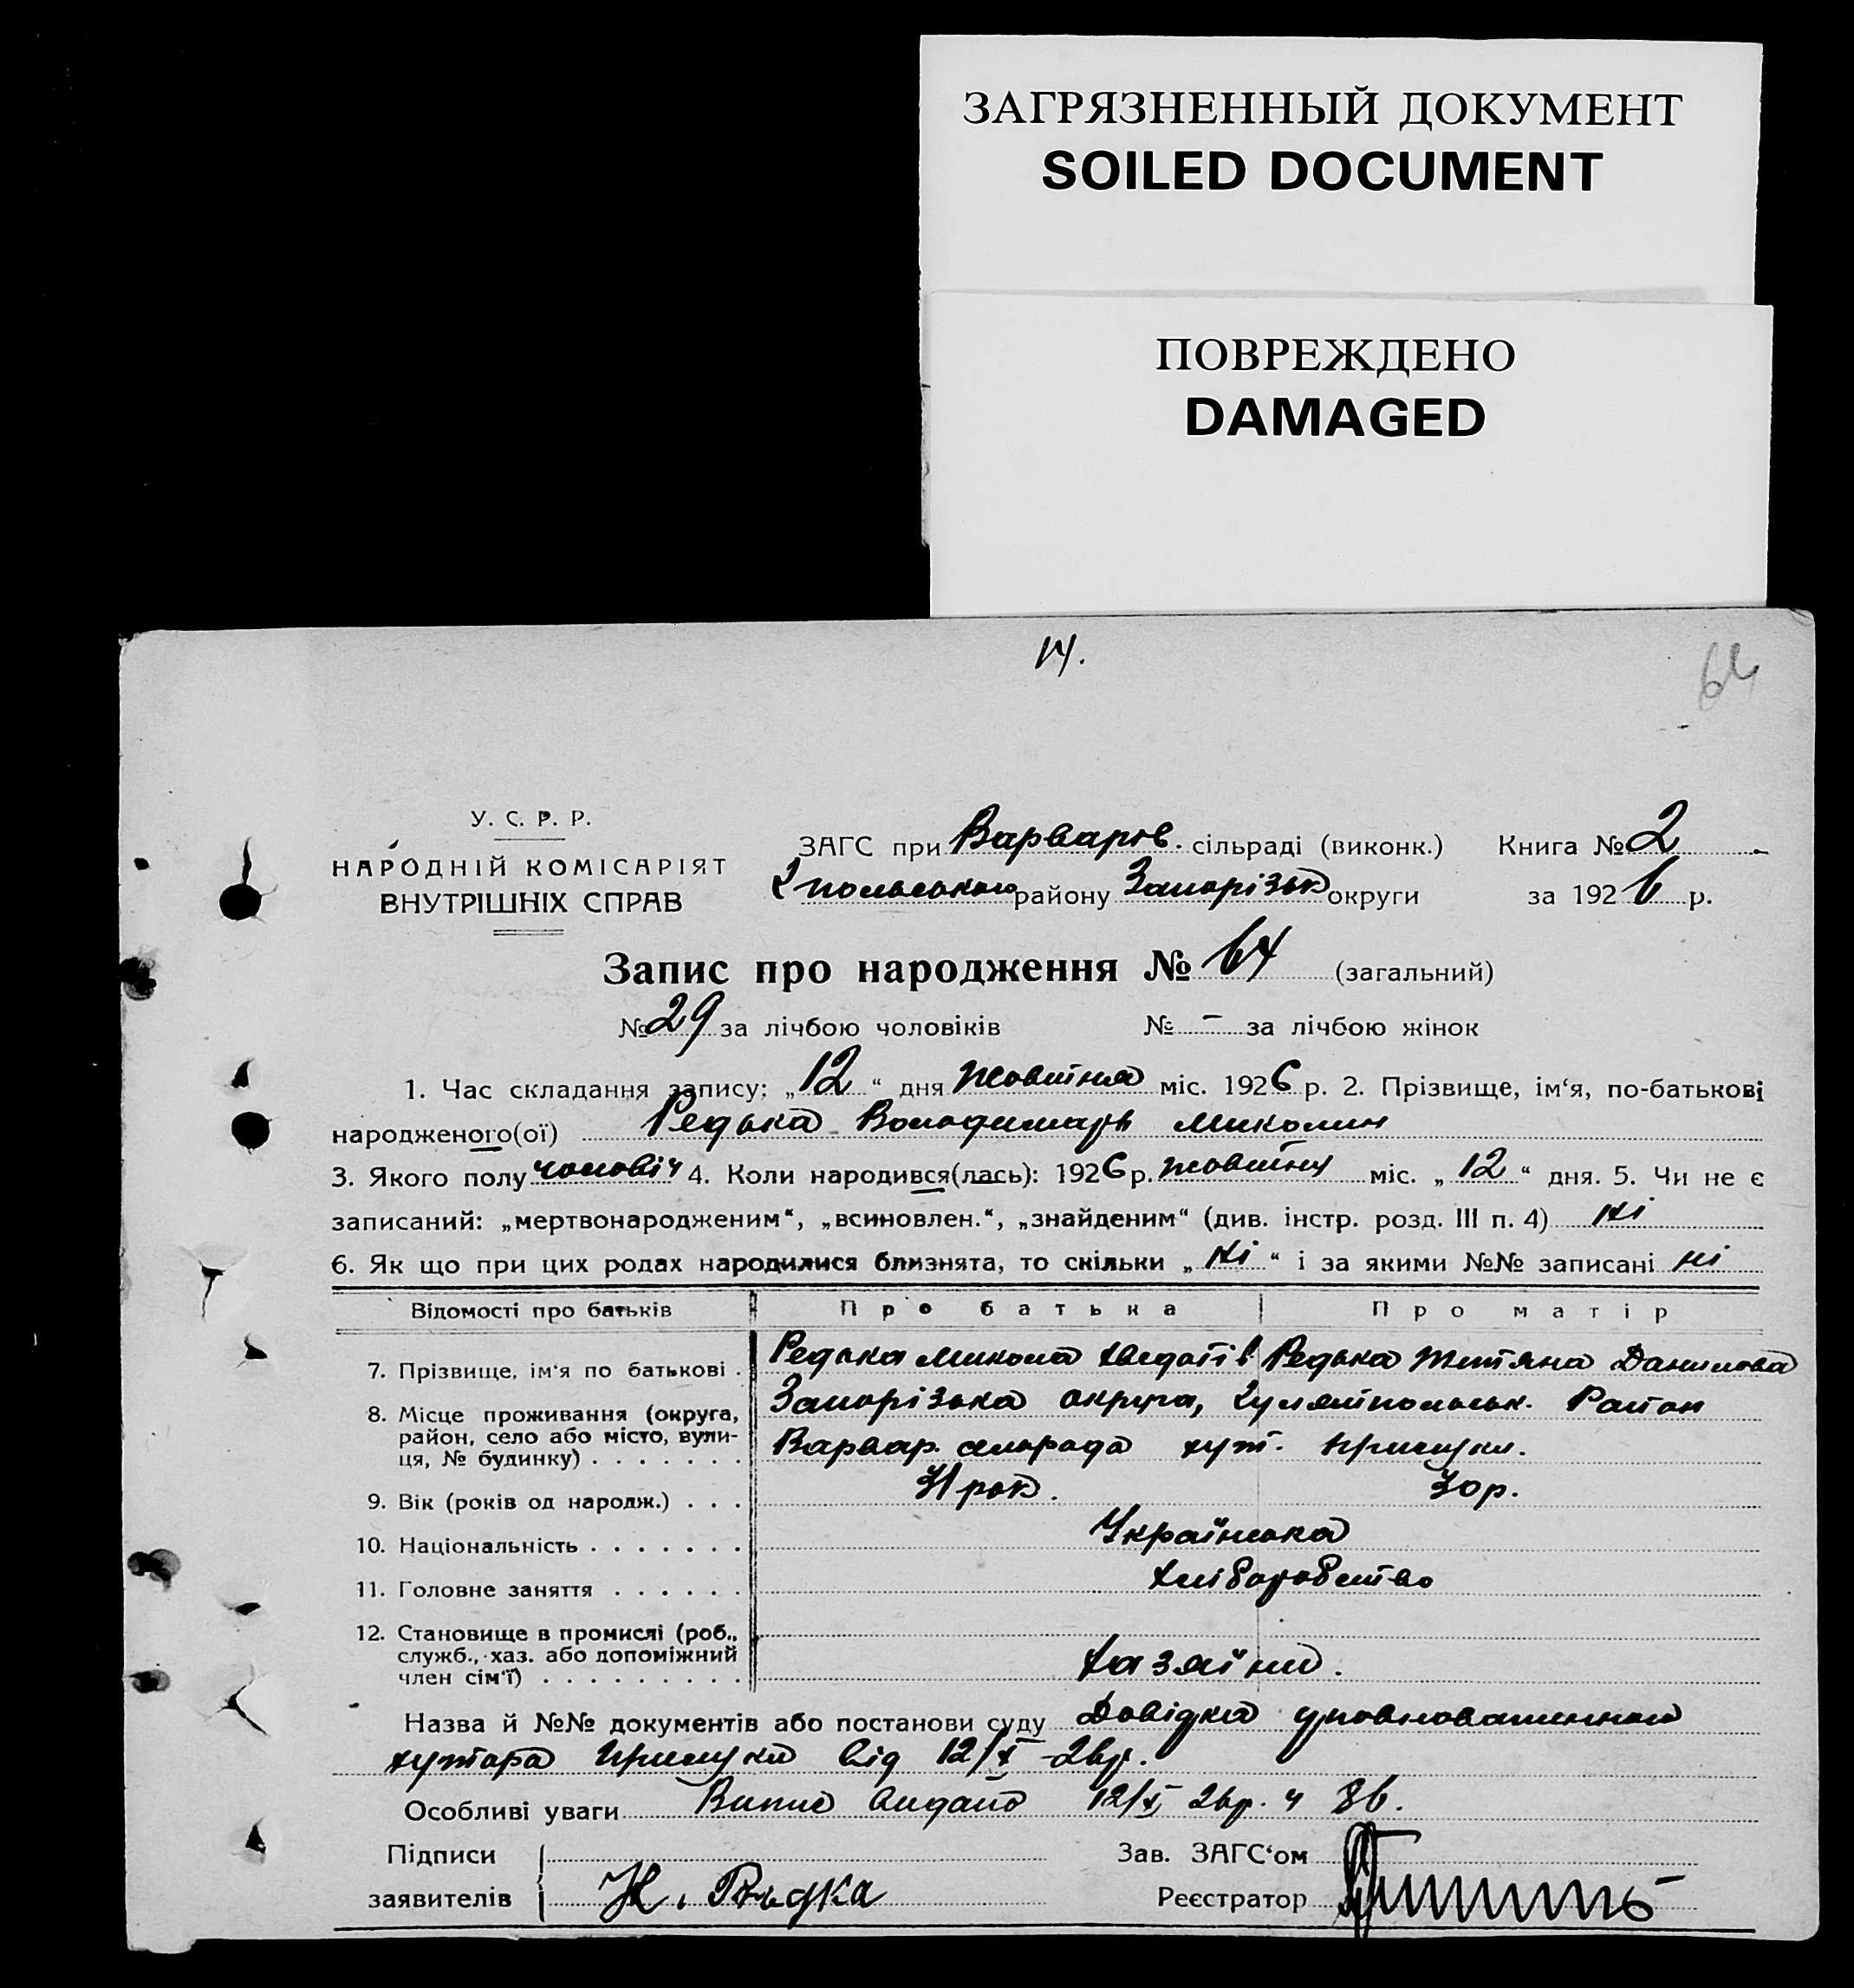 ЗАГРЯЗНЕННЫЙ ДОКУМЕНТ
SOILED DOCUMENT
ПОВРЕЖДЕНО
DAMAGED
14.
64
У. С. Р. Р.
НАРОДНІЙ КОМІСАРІЯТ
ВНУТРІШНІХ СПРАВ
ЗАГС при Варварів. сільраді (виконк.) Книга № 2
Г польського району Запорізьк округи за 1926 р.
Запис про народження № 64 (загальний)
№ 29 за лічбою чоловіків № - за лічбою жінок
1. Час складання запису: „12“ дня жовтня міс. 1926 р. 2. Прізвище, ім‘я, по-батькові
народженого(ої) Редька Володимаръ Миколин
3. Якого полу чоловіч 4. Коли народився(лась): 1926 р. жовтня міс. „12“ дня. 5. Чи не є
записаний: „мертвонародженим“, „всиновлен.“, „знайденим“ (див. інстр. розд. III п. 4) ні
6. Як що при цих родах народилися близнята, то скільки „ні“ і за якими №№ записані ні
Відомості про батьків Про батька Про матір
7. Прізвище, ім‘я по батькові . Редька Микола Хведотів Редька Тетяна Данилова
8. Місце проживання (округа, район, село або місто, вулиця, № будинку) . . . . . . . Запорізька округа, Гуляйпольськ. Район
Варвар. сельрада хут.
9. Вік (років од народж.) . . . 31 рок. 30 р.
10. Національність . . . . . . . Українська
11. Головне заняття . . . . . . Хліборобство
12. Становище в промислі (роб., служб., хаз. або допоміжний член сім‘ї) . . . . . . . . . Хазяїни.
Назва й №№ документів або постанови суду Довідка уповноваженого
хутора від 12/X -26р.
Особливі уваги Випис видано 12/X 26р. ч 86.
Підписи
заявителів Н. Редка
Зав. ЗАГС‘ом
Реєстратор